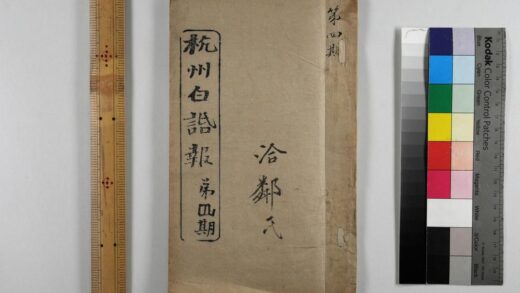 第四期
洽鄰氏
杭州白話報 第四期
Kodak Color Control Patches
Blue
Cyan
Green
Yellow
Red
Magenta
White
3/Color
Black